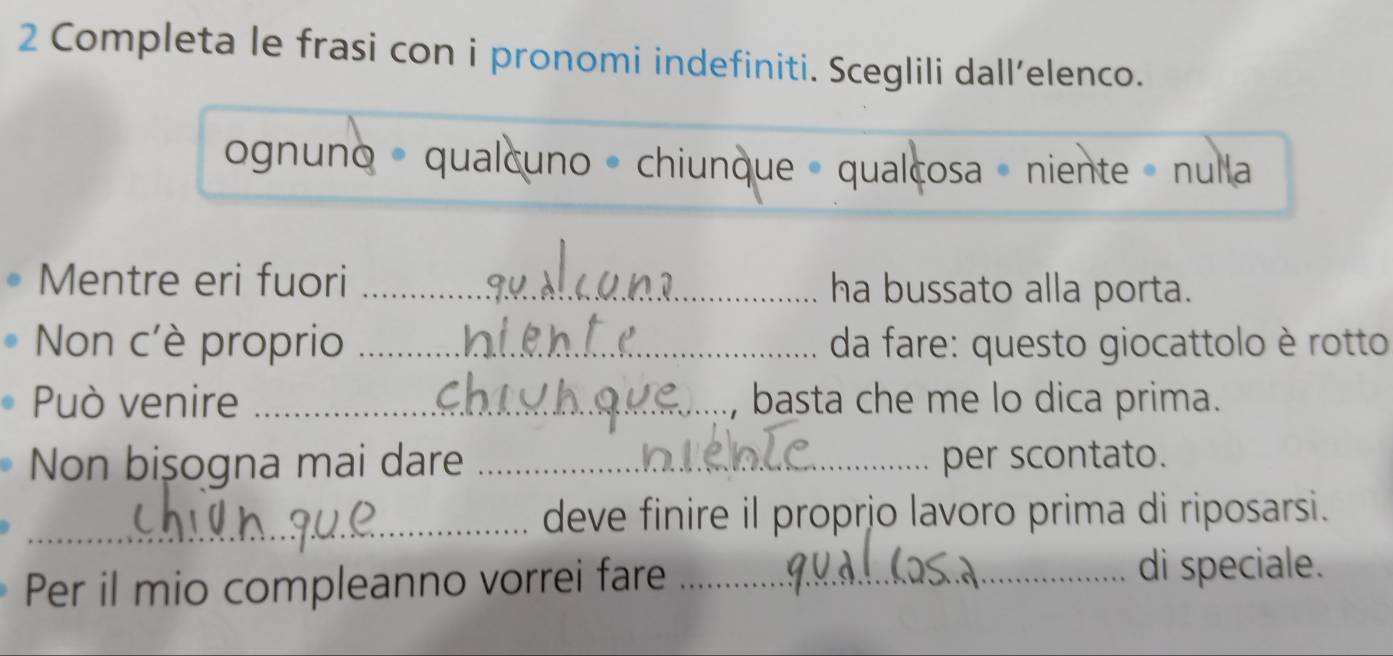 2 Completa le frasi con i pronomi indefiniti. Sceglili dall'elenco.
ognuno • qualcuno • chiunque • qualcosa • niente • nulla
• Mentre eri fuori qualcuno ha bussato alla porta.
• Non c'è proprio niente da fare: questo giocattolo è rotto
• Può venire chiunque, basta che me lo dica prima.
• Non bisogna mai dare niente per scontato.
• chiunque deve finire il proprio lavoro prima di riposarsi.
• Per il mio compleanno vorrei fare qualcosa di speciale.